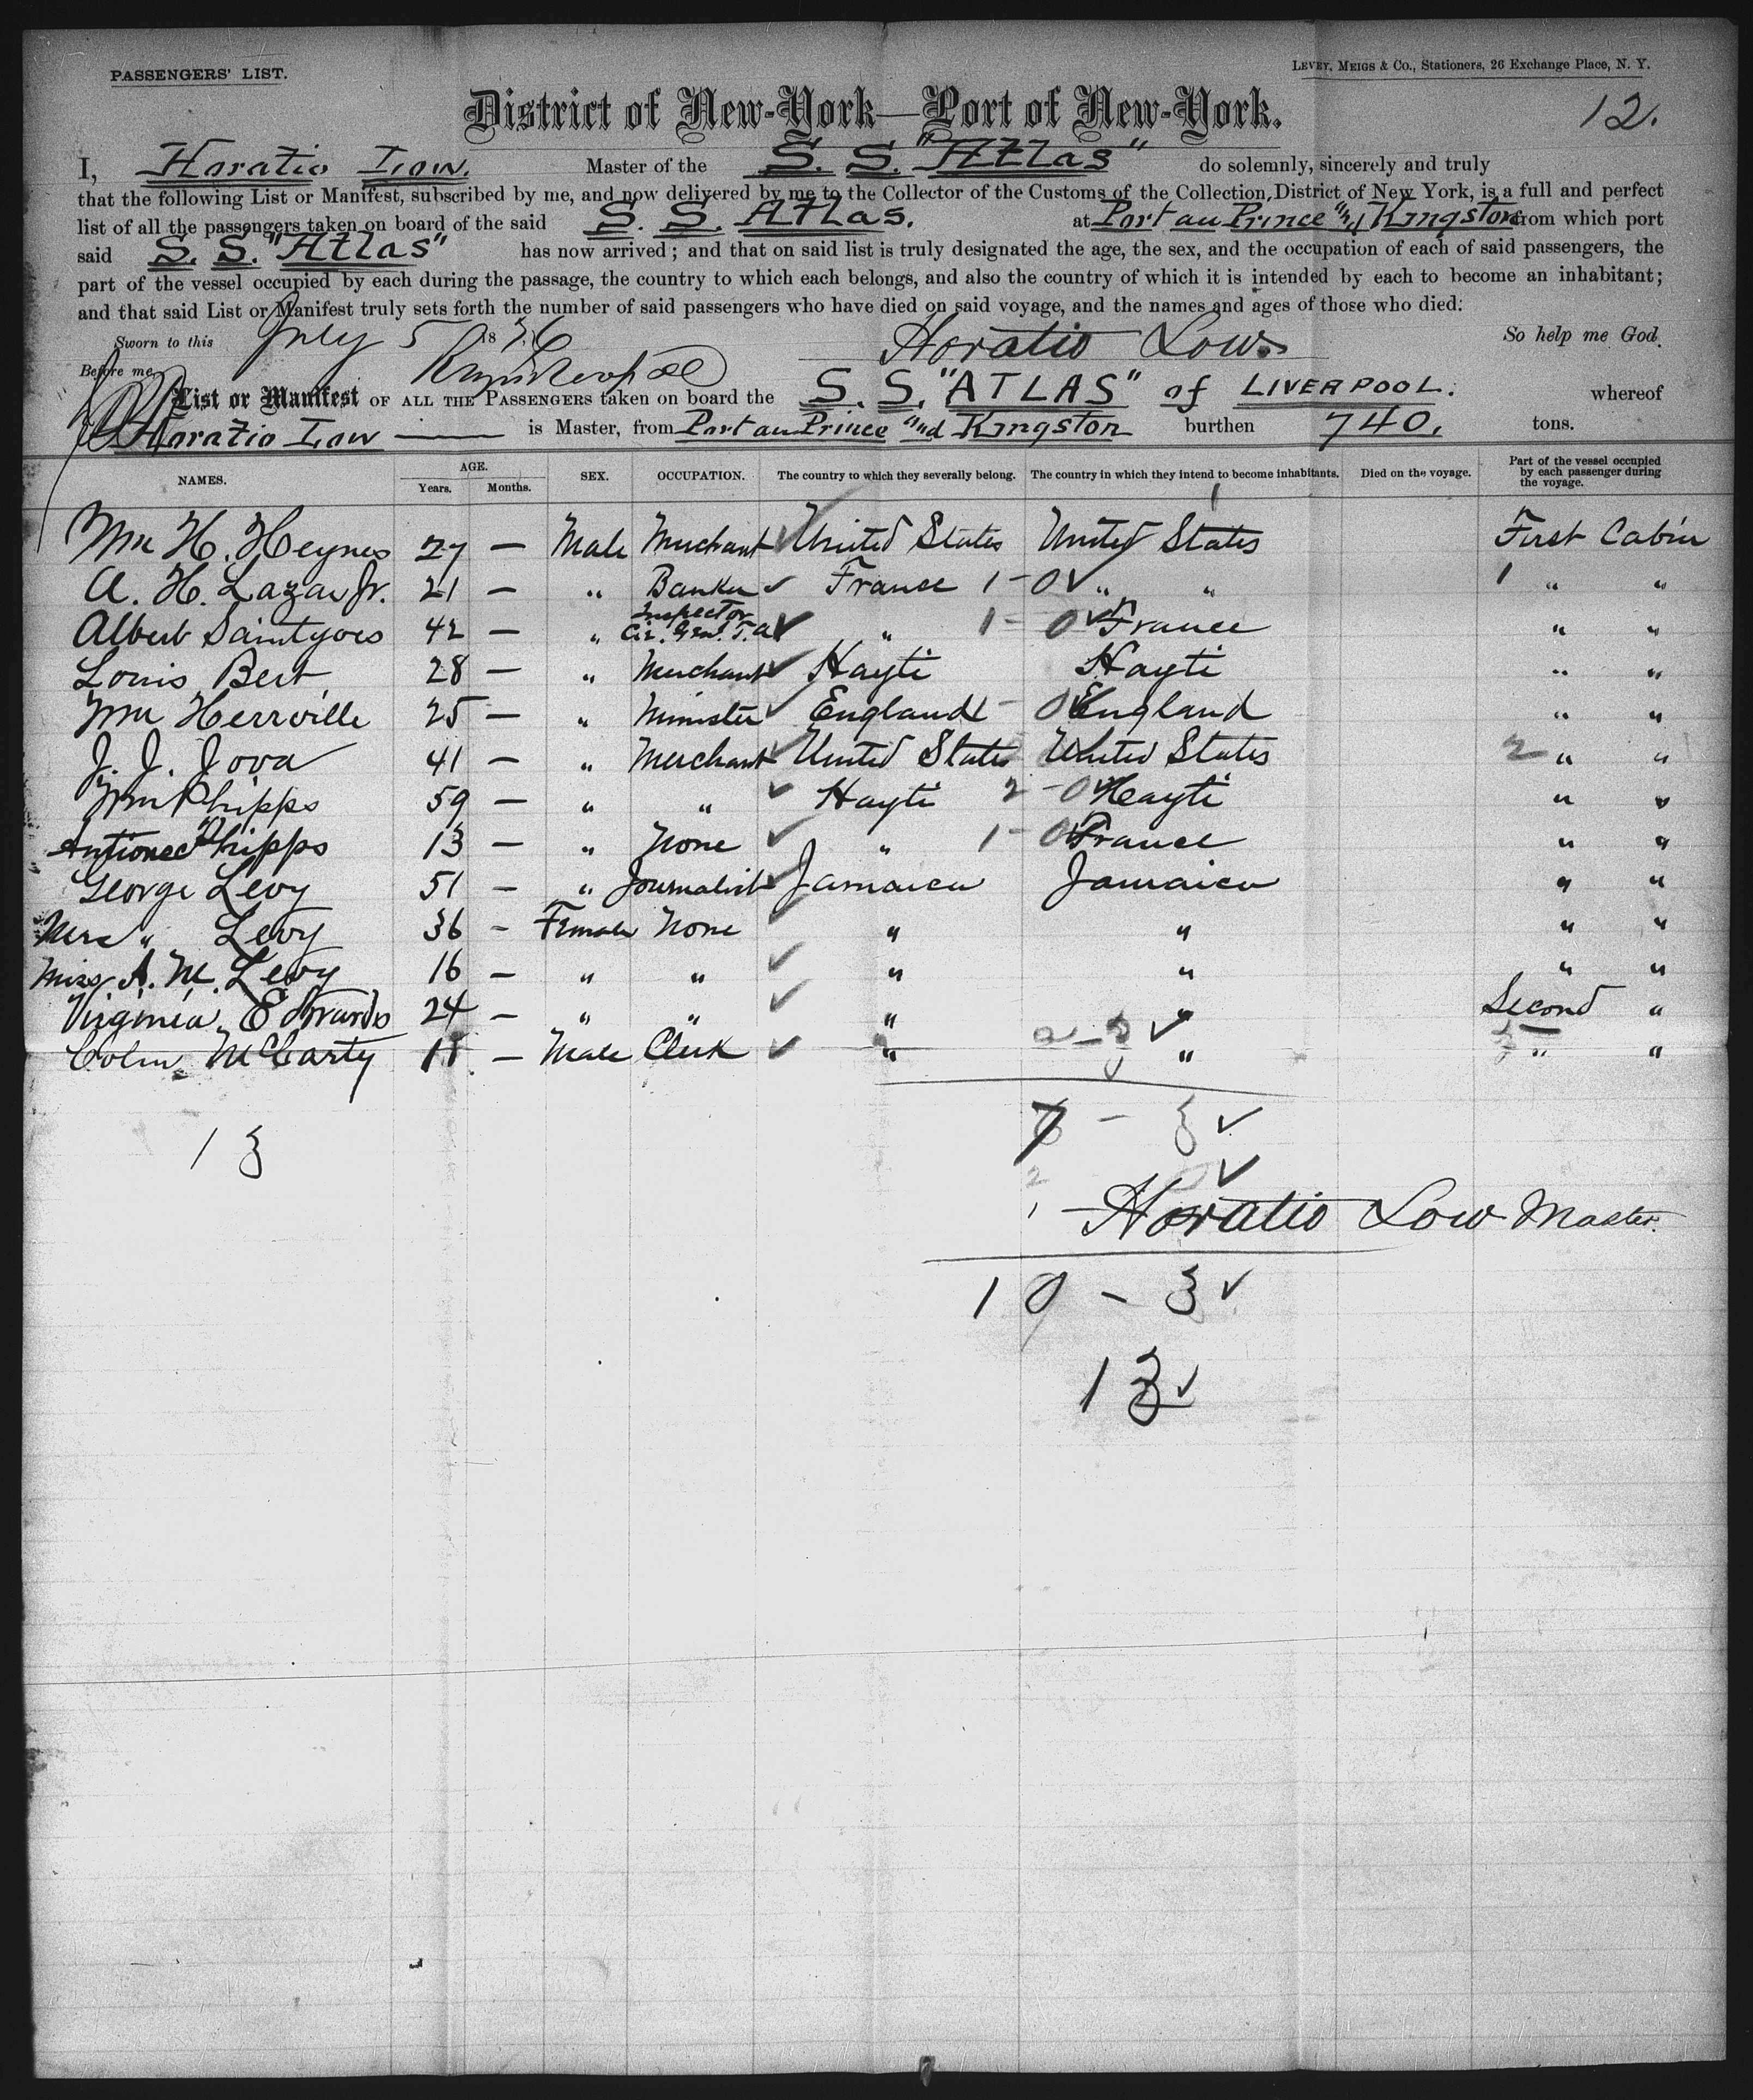 PASSENGERS' LIST.
LEVEY, MEIGS & Co., Stationers, 26 Exchange Place, N. Y.
District of New-York—Port of New-York.
12.
I, Horatio Low. Master of the S. S. "Atlas" do solemnly, sincerely and truly
that the following List or Manifest, subscribed by me, and now delivered by me to the Collector of the Customs of the Collection, District of New York, is a full and perfect
list of all the passengers taken on board of the said S. S. Atlas. at Port au Prince and Kingston from which port
said S. S. "Atlas" has now arrived; and that on said list is truly designated the age, the sex, and the occupation of each of said passengers, the
part of the vessel occupied by each during the passage, the country to which each belongs, and also the country of which it is intended by each to become an inhabitant;
and that said List or Manifest truly sets forth the number of said passengers who have died on said voyage, and the names and ages of those who died.
Sworn to this July 5 1876 Horatio Low So help me God.
Before me,
List or Manifest OF ALL THE PASSENGERS taken on board the S. S. "ATLAS" of LIVERPOOL. whereof
Horatio Low — is Master, from Port au Prince and Kingston burthen 740. tons.
NAMES. AGE. Years. Months. SEX. OCCUPATION. The country to which they severally belong. The country in which they intend to become inhabitants. Died on the voyage. Part of the vessel occupied by each passenger during the voyage.
Wm H. Heynes 27 — Male Merchant United States United States First Cabin
A. H. Lazar Jr. 21 — " Banker France 1-0 " " 1 " "
Albert Saintyves 42 — " Inspector Cie. Genl. T. a " 1-0 France " "
Louis Bert 28 — " Merchant Hayti Hayti " "
Wm Herrville 25 — " Minister England 1-0 England " "
J. J. Jova 41 — " Merchant United States United States 2 " "
Wm Phipps 59 — " " Hayti 2-0 Hayti " "
Phipps 13 — " None " 1-0 France " "
George Levy 51 — " Journalist Jamaica Jamaica " "
Mrs " Levy 36 - Female None " " " "
Miss A. M. Levy 16 — " " " " " "
Virginia Edwards 24 — " " " " Second "
Colin McCarty 18 — Male Clerk " " " "
13
7 - 3
Horatio Low Master.
10 - 3
13